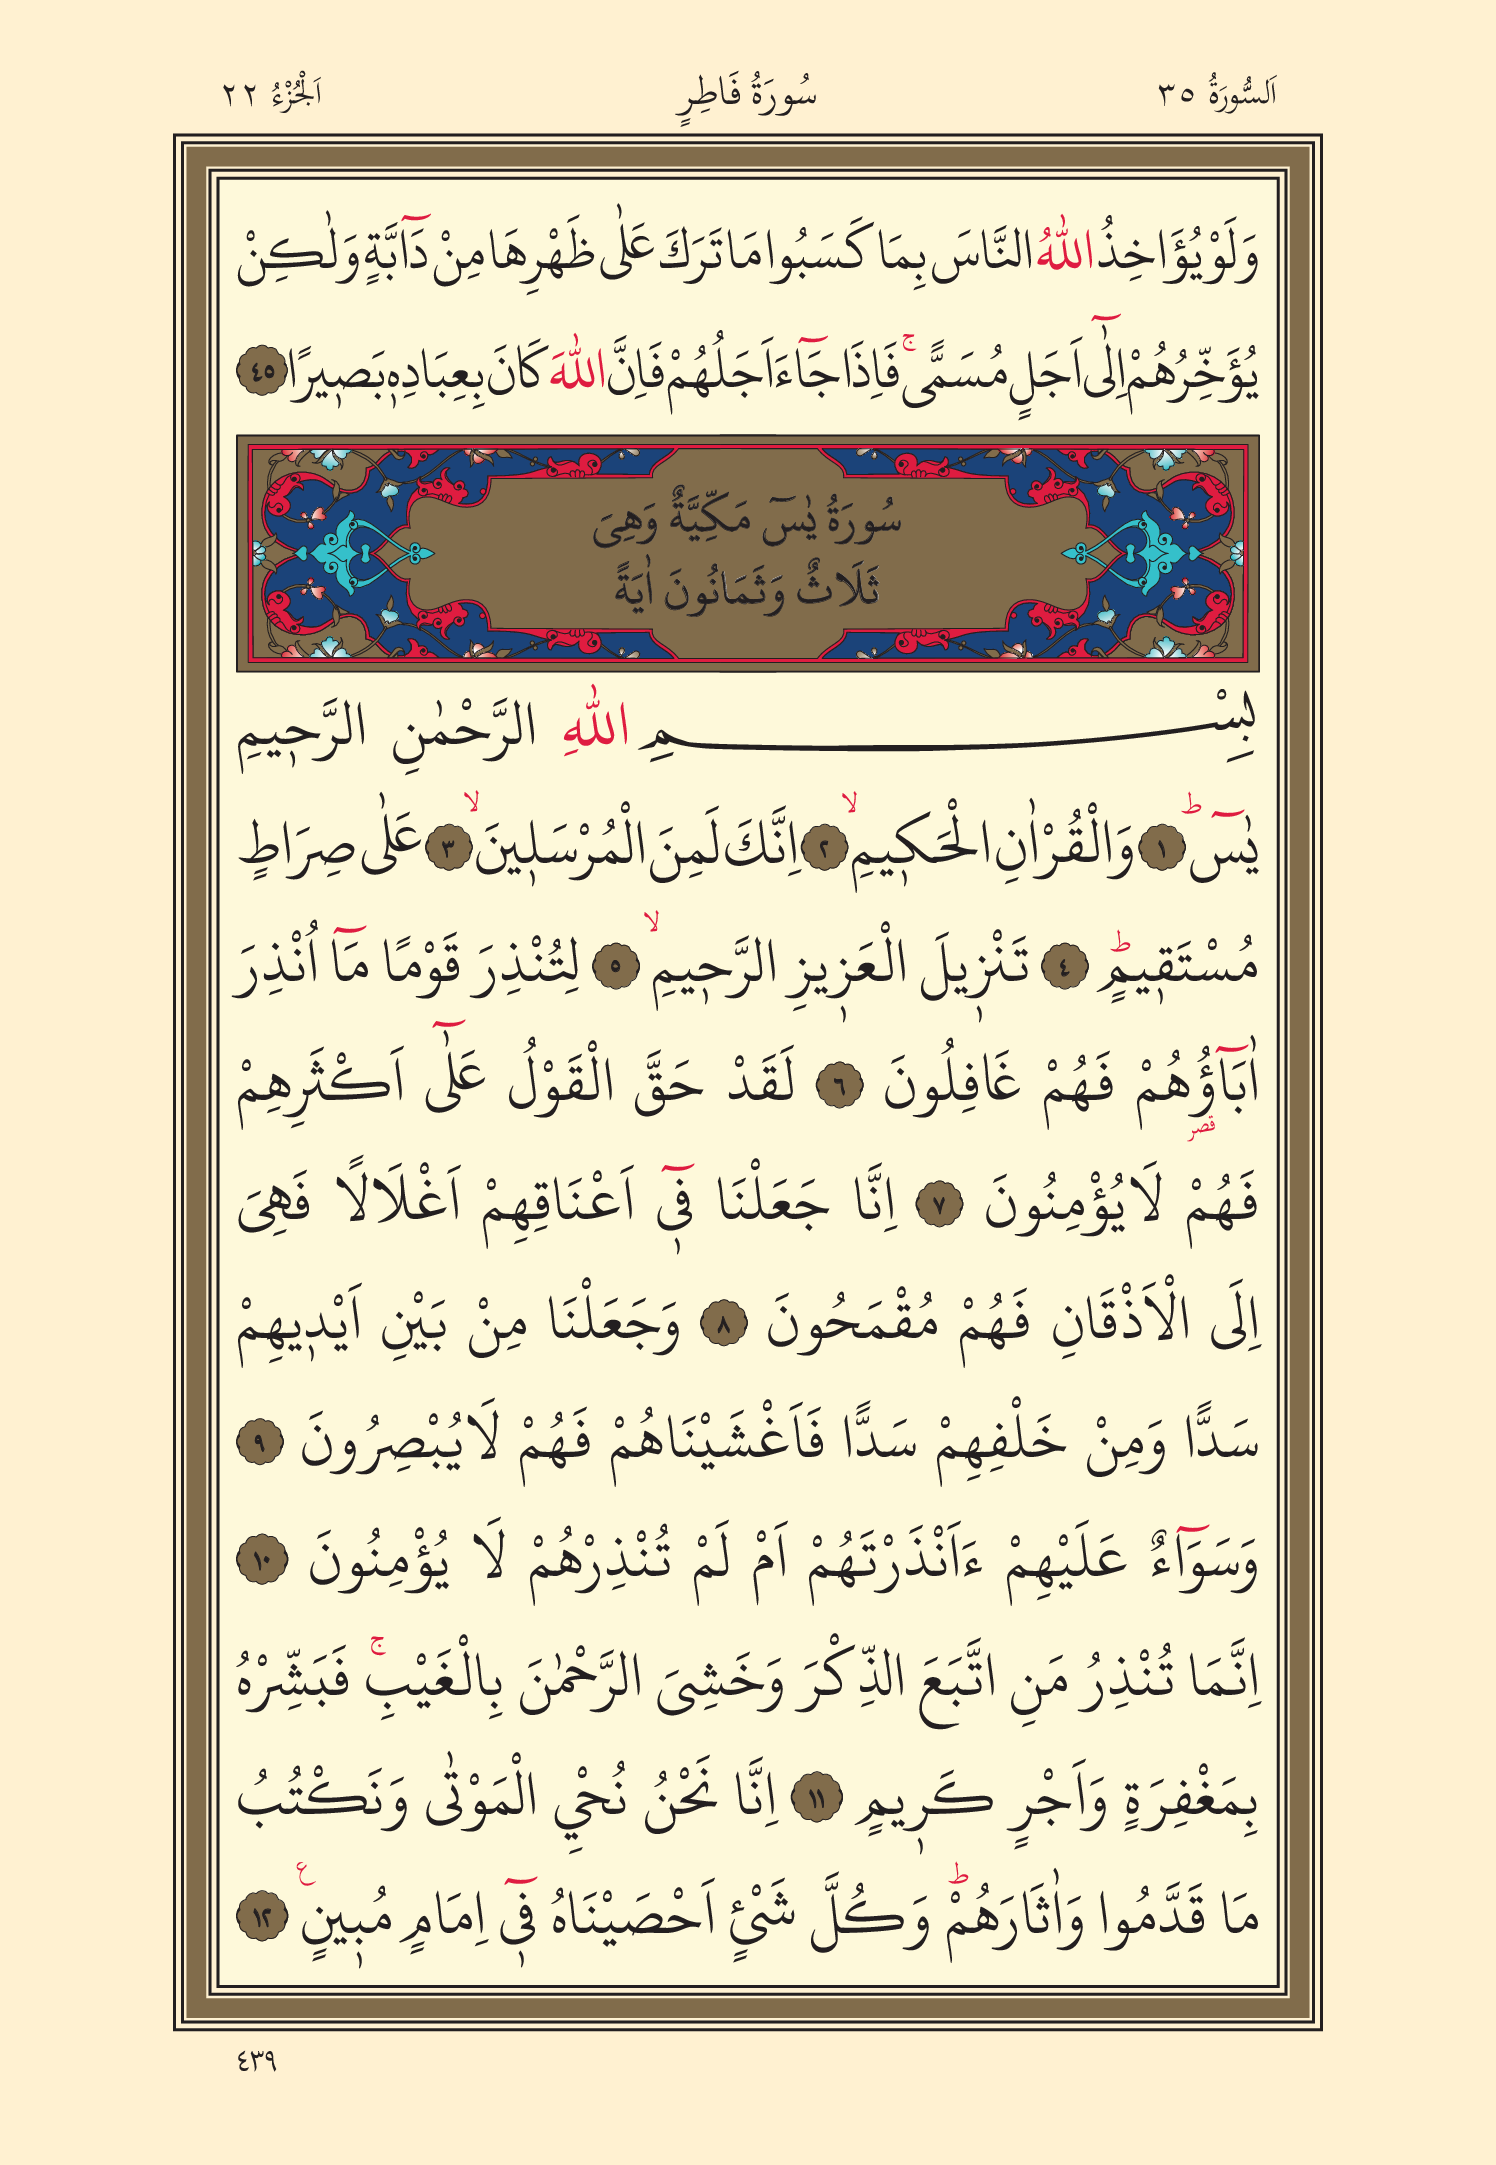 اَلسُّورَةُ ٣٥ سُورَةُ فَاطِرٍ اَلْجُزْءُ ٢٢
وَلَوْ يُؤَاخِذُ اللّٰهُ النَّاسَ بِمَا كَسَبُوا مَا تَرَكَ عَلٰى ظَهْرِهَا مِنْ دَٓابَّةٍ وَلٰكِنْ
يُؤَخِّرُهُمْ اِلٰٓى اَجَلٍ مُسَمًّىۚ فَاِذَا جَٓاءَ اَجَلُهُمْ فَاِنَّ اللّٰهَ كَانَ بِعِبَادِه۪ بَص۪يرًا ٤٥
سُورَةُ يٰسٓ مَكِّيَّةٌ وَهِىَ
ثَلَاثٌ وَثَمَانُونَ اٰيَةً
بِسْمِ اللّٰهِ الرَّحْمٰنِ الرَّح۪يمِ
يٰسٓۜ ١ وَالْقُرْاٰنِ الْحَك۪يمِۙ ٢ اِنَّكَ لَمِنَ الْمُرْسَل۪ينَۙ ٣ عَلٰى صِرَاطٍ
مُسْتَق۪يمٍۜ ٤ تَنْز۪يلَ الْعَز۪يزِ الرَّح۪يمِۙ ٥ لِتُنْذِرَ قَوْمًا مَٓا اُنْذِرَ
اٰبَٓاؤُ۬هُمْ فَهُمْ غَافِلُونَ ٦ لَقَدْ حَقَّ الْقَوْلُ عَلٰٓى اَكْثَرِهِمْ
قصر
فَهُمْ لَا يُؤْمِنُونَ ٧ اِنَّا جَعَلْنَا ف۪ٓى اَعْنَاقِهِمْ اَغْلَالًا فَهِىَ
اِلَى الْاَذْقَانِ فَهُمْ مُقْمَحُونَ ٨ وَجَعَلْنَا مِنْ بَيْنِ اَيْد۪يهِمْ
سَدًّا وَمِنْ خَلْفِهِمْ سَدًّا فَاَغْشَيْنَاهُمْ فَهُمْ لَا يُبْصِرُونَ ٩
وَسَوَٓاءٌ عَلَيْهِمْ ءَاَنْذَرْتَهُمْ اَمْ لَمْ تُنْذِرْهُمْ لَا يُؤْمِنُونَ ١٠
اِنَّمَا تُنْذِرُ مَنِ اتَّبَعَ الذِّكْرَ وَخَشِىَ الرَّحْمٰنَ بِالْغَيْبِۚ فَبَشِّرْهُ
بِمَغْفِرَةٍ وَاَجْرٍ كَر۪يمٍ ١١ اِنَّا نَحْنُ نُحْيِ الْمَوْتٰى وَنَكْتُبُ
مَا قَدَّمُوا وَاٰثَارَهُمْۜ وَكُلَّ شَىْءٍ اَحْصَيْنَاهُ ف۪ٓى اِمَامٍ مُب۪ينٍ ع ١٢
٤٣٩